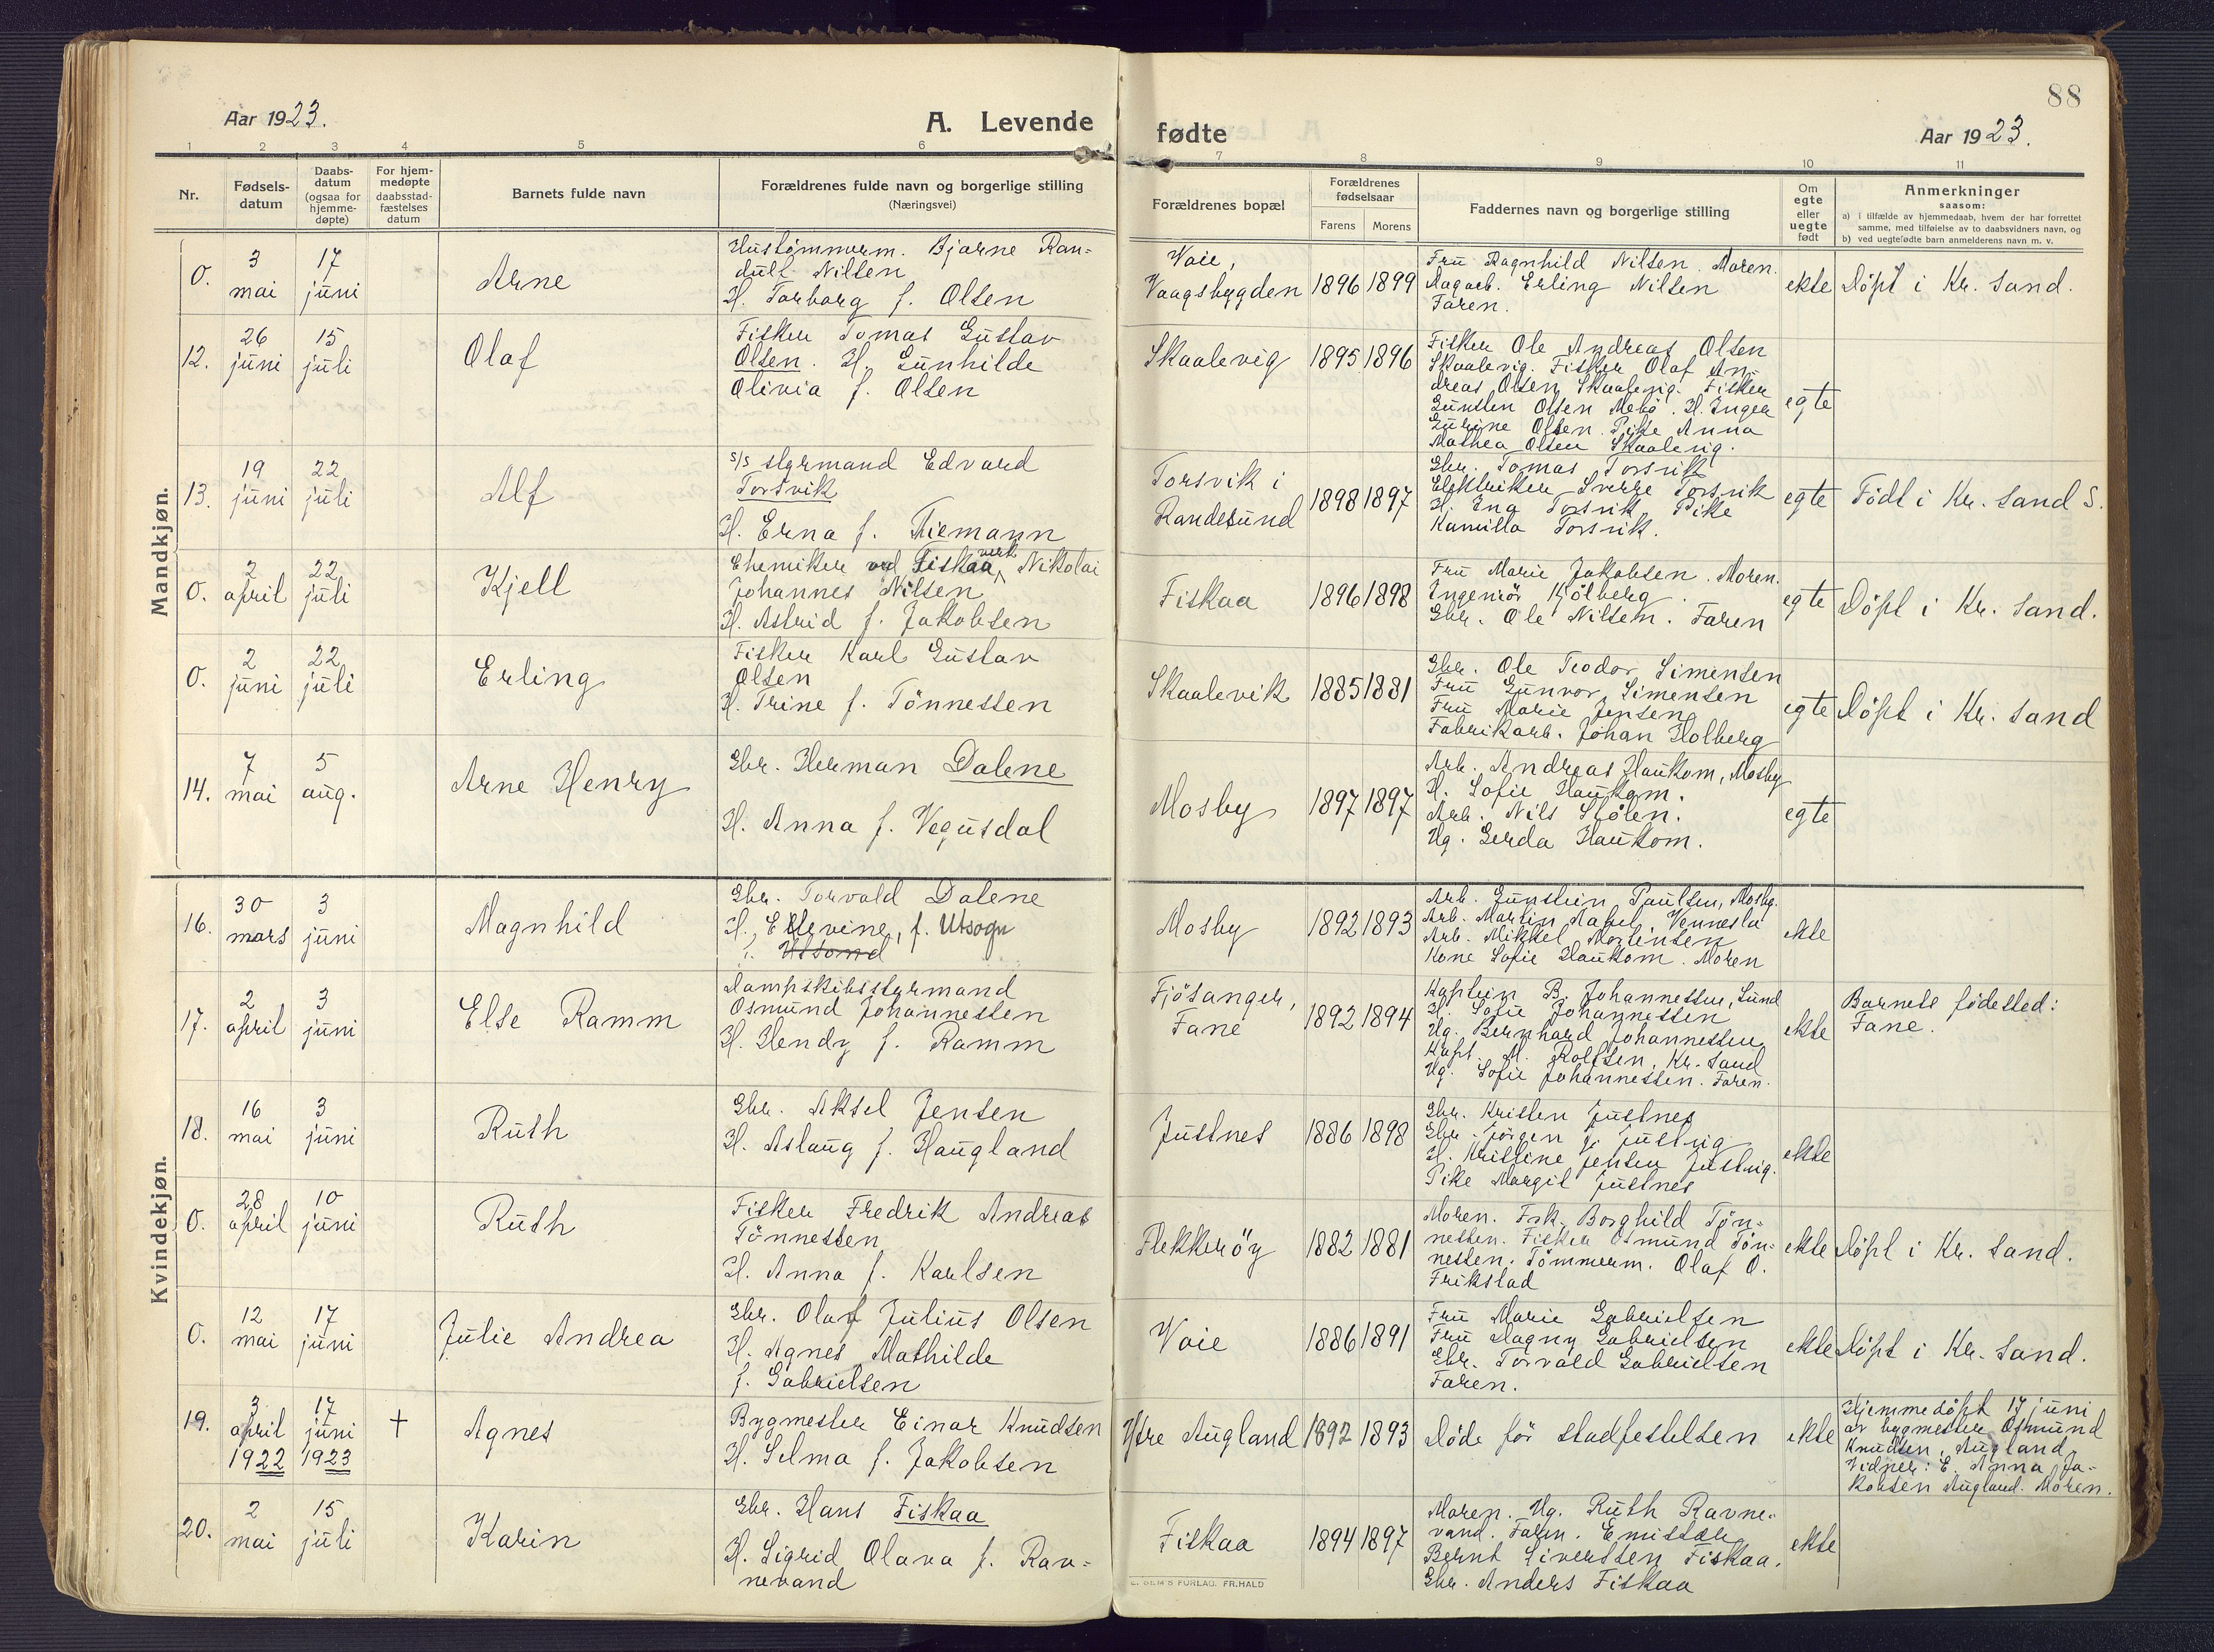 88
Aar 1923.
A. Levende fødte
Aar 1923.
1 2 3 4 5 6 7 8 9 10 11
Nr.
Fødsels-
datum
Daabs-
datum
(ogsaa for
hjemme-
døpte)
For hjem-
medøpte
daabsstad-
fæstelses
datum
Barnets fulde navn
Forældrenes fulde navn og borgerlige stilling
(Næringsvei)
Forældrenes bopæl
Forældrenes
fødselsaar
Farens Morens
Faddernes navn og borgerlige stilling
Om
egte
eller
uegte
født
Anmerkninger
saasom:
a) i tilfælde av hjemmedaab, hvem der har forrettet
samme, med tilføielse av to daabsvidners navn, og
b) ved uegtefødte barn anmelderens navn m. v.
Mandkjøn.
0.
3
mai
17
juni
Arne
Hustømmerm. Bjarne Ran=
dulf Nilsen
H. Torborg f. Olsen
Vaie,
Vaagsbygden
1896 1899
Fru Ragnhild Nilsen. Moren.
Erling Nilsen
Faren.
ekte
Döpt i Kr. sand.
12.
26
juni
15
juli
Olaf
Fisker Tomas Gustav
Olsen. H. Gunhilde
Olivia f. Olsen
Skaalevig
1895 1896
Fisker Ole Andreas Olsen
Skaalevig. Fisker Olaf An=
dreas Olsen Skaalevig. Fisker
Gunsten Olsen Mebö. H. Inger
Gurine Olsen. Pike Anna
Mathea Olsen Skaalevig.
egte
13.
19
juni
22
juli
Alf
s/s styrmand Edvard
Torsvik
H. Erna f. Tiemann
Torsvik i
Randesund
1898 1897
Gbr. Tomas Torsvik
Elektriker Sverre Torsvik
H. Ena Torsvik Pike
Kamilla Torsvik.
egte
Födt i Kr. sand S.
0.
2
april
22
juli
Kjell
Chemiker ved Fiskaa verk Nikolai
Johannes Nilsen
H. Astrid f. Jakobsen
Fiskaa
1896 1898
Fru Marie Jakobsen. Moren.
Ingeniör Kjölberg.
Gbr. Ole Nilsen. Faren
egte
Döpt i Kr. sand.
0.
2
juni
22
juli
Erling
Fisker Karl Gustav
Olsen
H. Trine f. Tönnessen
Skaalevik
1885 1881
Gbr. Ole Teodor Simensen
Fru Gunvor Simensen
Fru Marie Jensen
Fabrikarb. Johan Holberg
egte
Döpt i Kr. sand
14.
7
mai
5
aug.
Arne Henry
Gbr. Herman Dalene
H. Anna f. Vegusdal
Mosby
1897 1897
Arb. Andreas Haukom, Mosby
H. Sofie Haukom.
Arb. Nils Stölen.
Ug. Gerda Haukom.
egte
Kvindekjøn.
16.
30
mars
3
juni
Magnhild
Gbr. Torvald Dalene
H. Ellevine, f. Utsogn
f. Utsond
Mosby
1892 1893
Arb. Gunstein Paulsen, Mosby.
Arb. Martin Aabel, Vennesla
Arb. Mikkel Mortensen
Kone Sofie Haukom. Moren
ekte
17.
2
april
3
juni
Else Ramm
Dampskibsstyrmand
Osmund Johannessen
H. Hendy f. Ramm
Fjösanger,
Fane
1892 1894
Kaptein B. Johannessen, Lund
H. Sofie Johannessen
Ug. Bernhard Johannessen
Kapt. M. Rolfsen, Kr. sand
Ug. Sofie Johannessen. Faren.
ekte
Barnets födested:
Fane.
18.
16
mai
3
juni
Ruth
Gbr. Aksel Jensen
H. Aslaug f. Haugland
Justnes
1886 1898
Gbr. Kristen Justnes
Gbr. Jörgen J. Justvig
H. Kristine Jensen Justvig.
Pike Margit Justnes
ekte
0.
28
april
10
juni
Ruth
Fisker Fredrik Andreas
Tönnessen
H. Anna f. Karlsen
Flekkeröy
1882 1881
Moren. Frk. Borghild Tön=
nessen. Fisker Osmund Tön=
nessen. Tömmerm. Olaf O.
Frikstad
ekte
Döpt i Kr. sand.
0.
12
mai
17
juni
Julie Andrea
Gbr. Olaf Julius Olsen
H. Agnes Mathilde
f. Gabrielsen
Vaie
1886 1891
Fru Marie Gabrielsen
Fru Dagny Gabrielsen
Gbr. Torvald Gabrielsen
Faren.
ekte
Döpt i Kr. sand.
19.
3
april
1922
17
juni
1923
†
Agnes
Bygmester Einar Knudsen
H. Selma f. Jakobsen
Ytre Augland
1892 1893
Döde för stadfestelsen
ekte
Hjemmedöpt 17 juni
av bygmester Osmund
Knudsen, Augland
Vidner: E. Anna Ja=
kobsen Augland. Moren.
20.
2
mai
15
juli
Karin
Gbr. Hans Fiskaa
H. Sigrid Olava f. Rav=
nevand
Fiskaa
1894 1897
Moren. Ug. Ruth Ravne=
vand. Faren. Emissær
Bernt Sivertsen Fiskaa.
Gbr. Anders Fiskaa
ekte
SEM'S FORLAG. FR.HALD